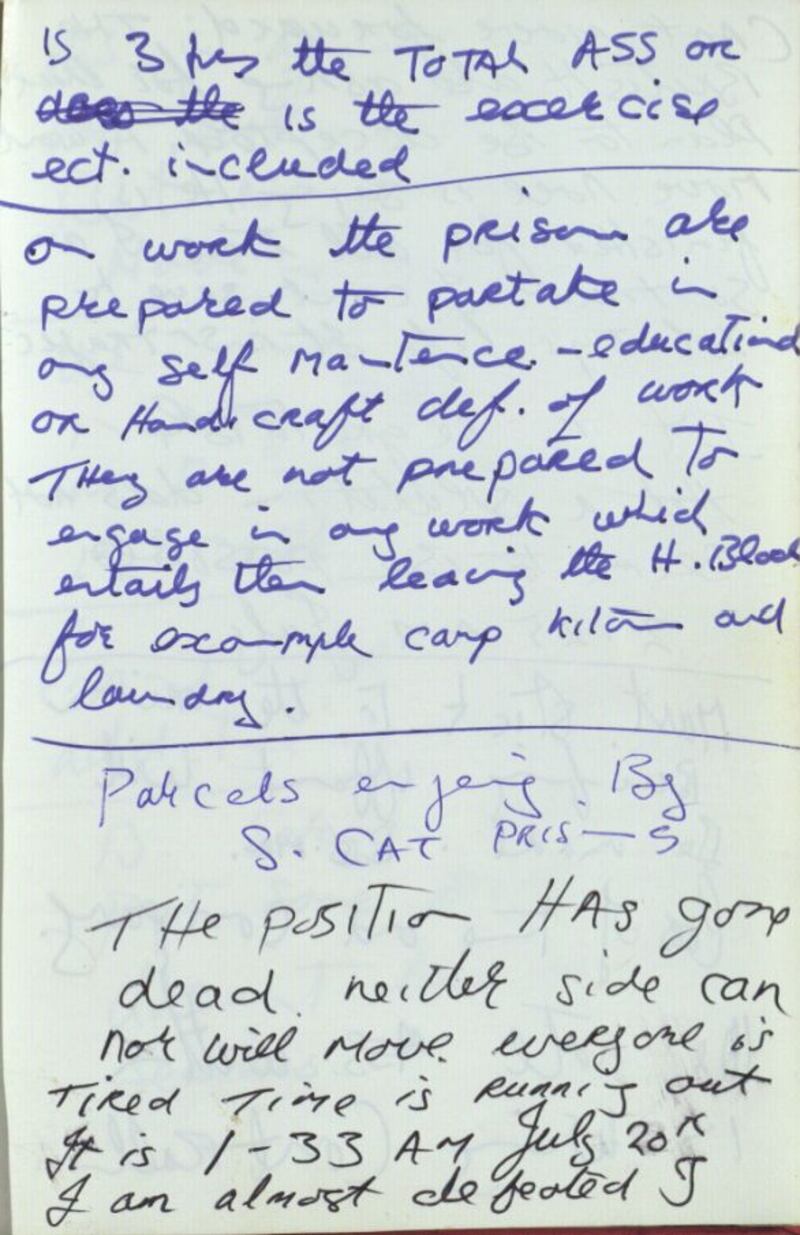 is 3 hrs the TOTAL ASS or
is the excercise
ect. included
on work the prison are
prepared to partake in
any self Mantence - education
or Handicraft def. of work
They are not prepared to
engage in any work which
entails them leaving the H. Block
for example camp kitchen and
laundry.
Parcels enjoing By
S. CAT PRIS—S
THE POSITION HAS gone
dead. neither side can
nor will move. everyone is
TIRED TIME is running out
It is 1-33 AM July 20th
I am almost defeated I